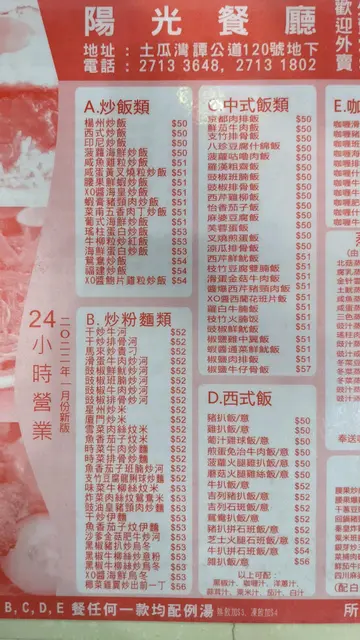 陽光餐廳
歡迎外賣
地址：土瓜灣譚公道120號地下
電話：2713 3648, 2713 1802
24小時營業
二〇二二年一月份新版
A.炒飯類
楊州炒飯 $50
西式炒飯 $50
印尼炒飯 $50
菠蘿海鮮炒飯 $50
咸魚雞粒炒飯 $51
咸蛋黃叉燒粒炒飯 $51
腰果鮮蝦炒飯 $51
XO醬海星炒飯 $51
蝦膏豬頸肉炒飯 $51
菜甫五香肉丁炒飯 $51
葡式海鮮炒飯 $51
瑤柱蛋白炒飯 $53
牛柳粒炒紅飯 $53
海鮮蛋白炒飯 $53
鴛鴦炒飯 $54
福建炒飯 $54
XO醬鮑片雞粒炒飯 $54
B.炒粉麵類
干炒牛河 $52
干炒排骨河 $52
馬來炒貴刁 $52
滑蛋牛肉炒河 $52
豉椒鮮魷炒河 $52
豉椒班腩炒河 $52
豉椒牛肉炒河 $52
豉椒排骨炒河 $52
星州炒米 $52
廈門炒米 $52
雪菜肉絲炆米 $52
魚香茄子炆米 $52
時菜牛肉炒麵 $52
時菜排骨炒麵 $52
魚香茄子班腩炒河 $52
支竹豆腐龍脷球炒麵 $52
味菜牛柳絲炆米 $53
炸菜肉絲炆鴛鴦米 $53
豉油皇豬頸肉炒麵 $53
干炒伊麵 $53
魚香茄子炆伊麵 $53
沙爹金菇肥牛炒河 $53
黑椒豬扒炒烏冬 $53
黑椒牛柳絲炒意粉 $53
XO醬海鮮炒烏冬 $53
椰菜雞翼炒出前一丁 $56
C.中式飯類
京都肉排飯 $50
鮮茄牛肉飯 $50
支竹排骨飯 $50
八珍豆腐什錦飯 $50
菠蘿咕嚕肉飯 $50
羅漢粗齋飯 $50
豉椒班腩飯 $50
豉椒排骨飯 $50
西芹雞柳飯 $50
怡香茄子飯 $50
麻婆豆腐飯 $50
芙蓉蛋飯 $50
叉燒煎蛋飯 $50
涼瓜排骨飯 $50
西芹鮮魷飯 $51
枝竹豆腐雙腩飯 $51
滑蛋金菇牛肉飯 $51
靈璣西芹豬頸肉飯 $51
XO醬西蘭花班片飯 $51
蘿白牛腩飯 $51
枝竹火腩飯 $51
豉椒鮮魷飯 $51
椒鹽雞中翼飯 $51
椒鹽肉排飯 $51
椒鹽牛仔骨飯 $57
D.西式飯
豬扒飯/意 $50
雞扒飯/意 $50
葡汁雞球飯/意 $50
煎蛋免治牛肉飯/意 $50
菠蘿火腿雞扒飯/意 $50
蘑菇火腿雞絲飯/意 $50
牛扒飯/意 $52
吉列豬扒飯/意 $52
吉列石班飯/意 $52
鴛鴦扒飯/意 $52
豬扒拼石班飯/意 $52
芝士火腿石班飯/意 $52
牛扒拼石班飯/意 $54
雜扒飯/意 $56
以上可配：
黑椒汁、咖喱汁、洋蔥汁、
蒜茸汁、粟米汁、茄汁、白汁
B, C, D, E 餐任何一款均配例湯 熱飲加$3, 凍飲加$4